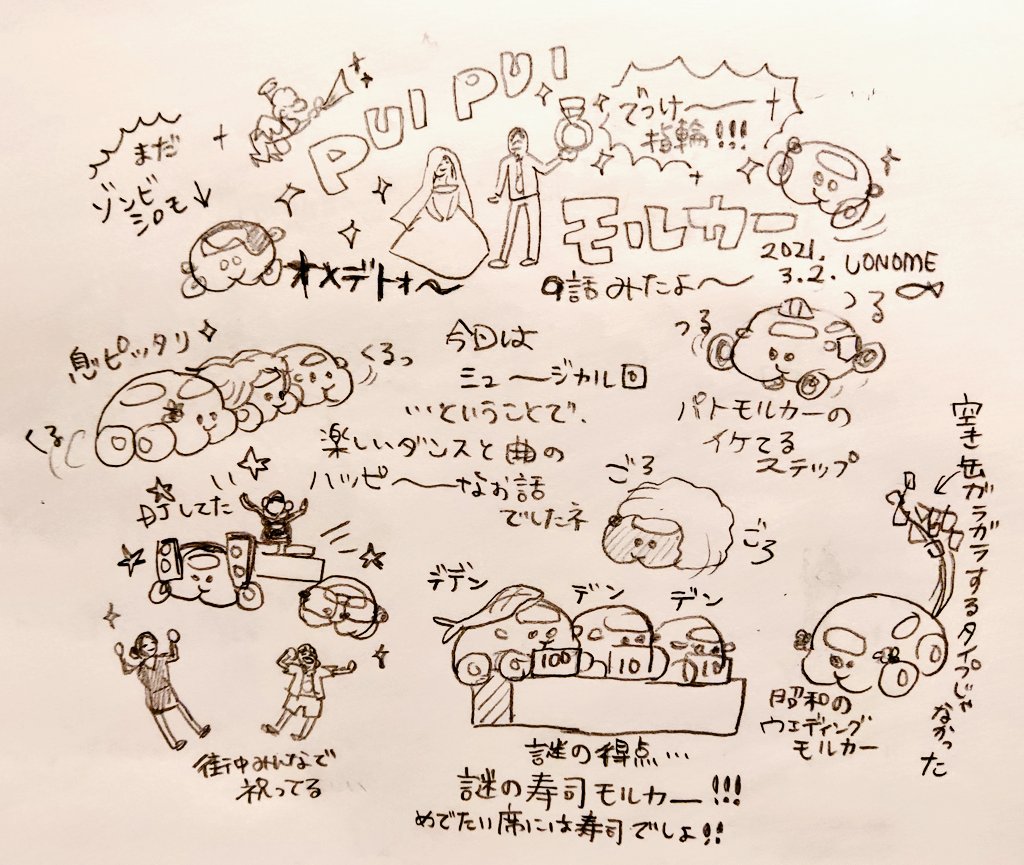 PUI PUI
モルカー
でっけ〜
指輪!!!
まだ
ゾンビ
シロモ↓
オメデトォ〜
2021.
3.2. UONOME
9話みたよ〜
息ピッタリ
くるっ
くる
つる
つる
今日は
ミュ〜ジカル回
…ということで、
楽しいダンスと曲の
ハッピ〜なお話
でしたネ
パトモルカーの
イケてる
ステップ
DJしてた
い
ごろ
ごろ
空き缶がガラガラするタイプじゃなかった
デデン
デン
デン
100
10
10
昭和の
ウエディング
モルカー
街中みんなで
祝ってる
謎の得点…
謎の寿司モルカー!!!
めでたい席には寿司でしょ!!